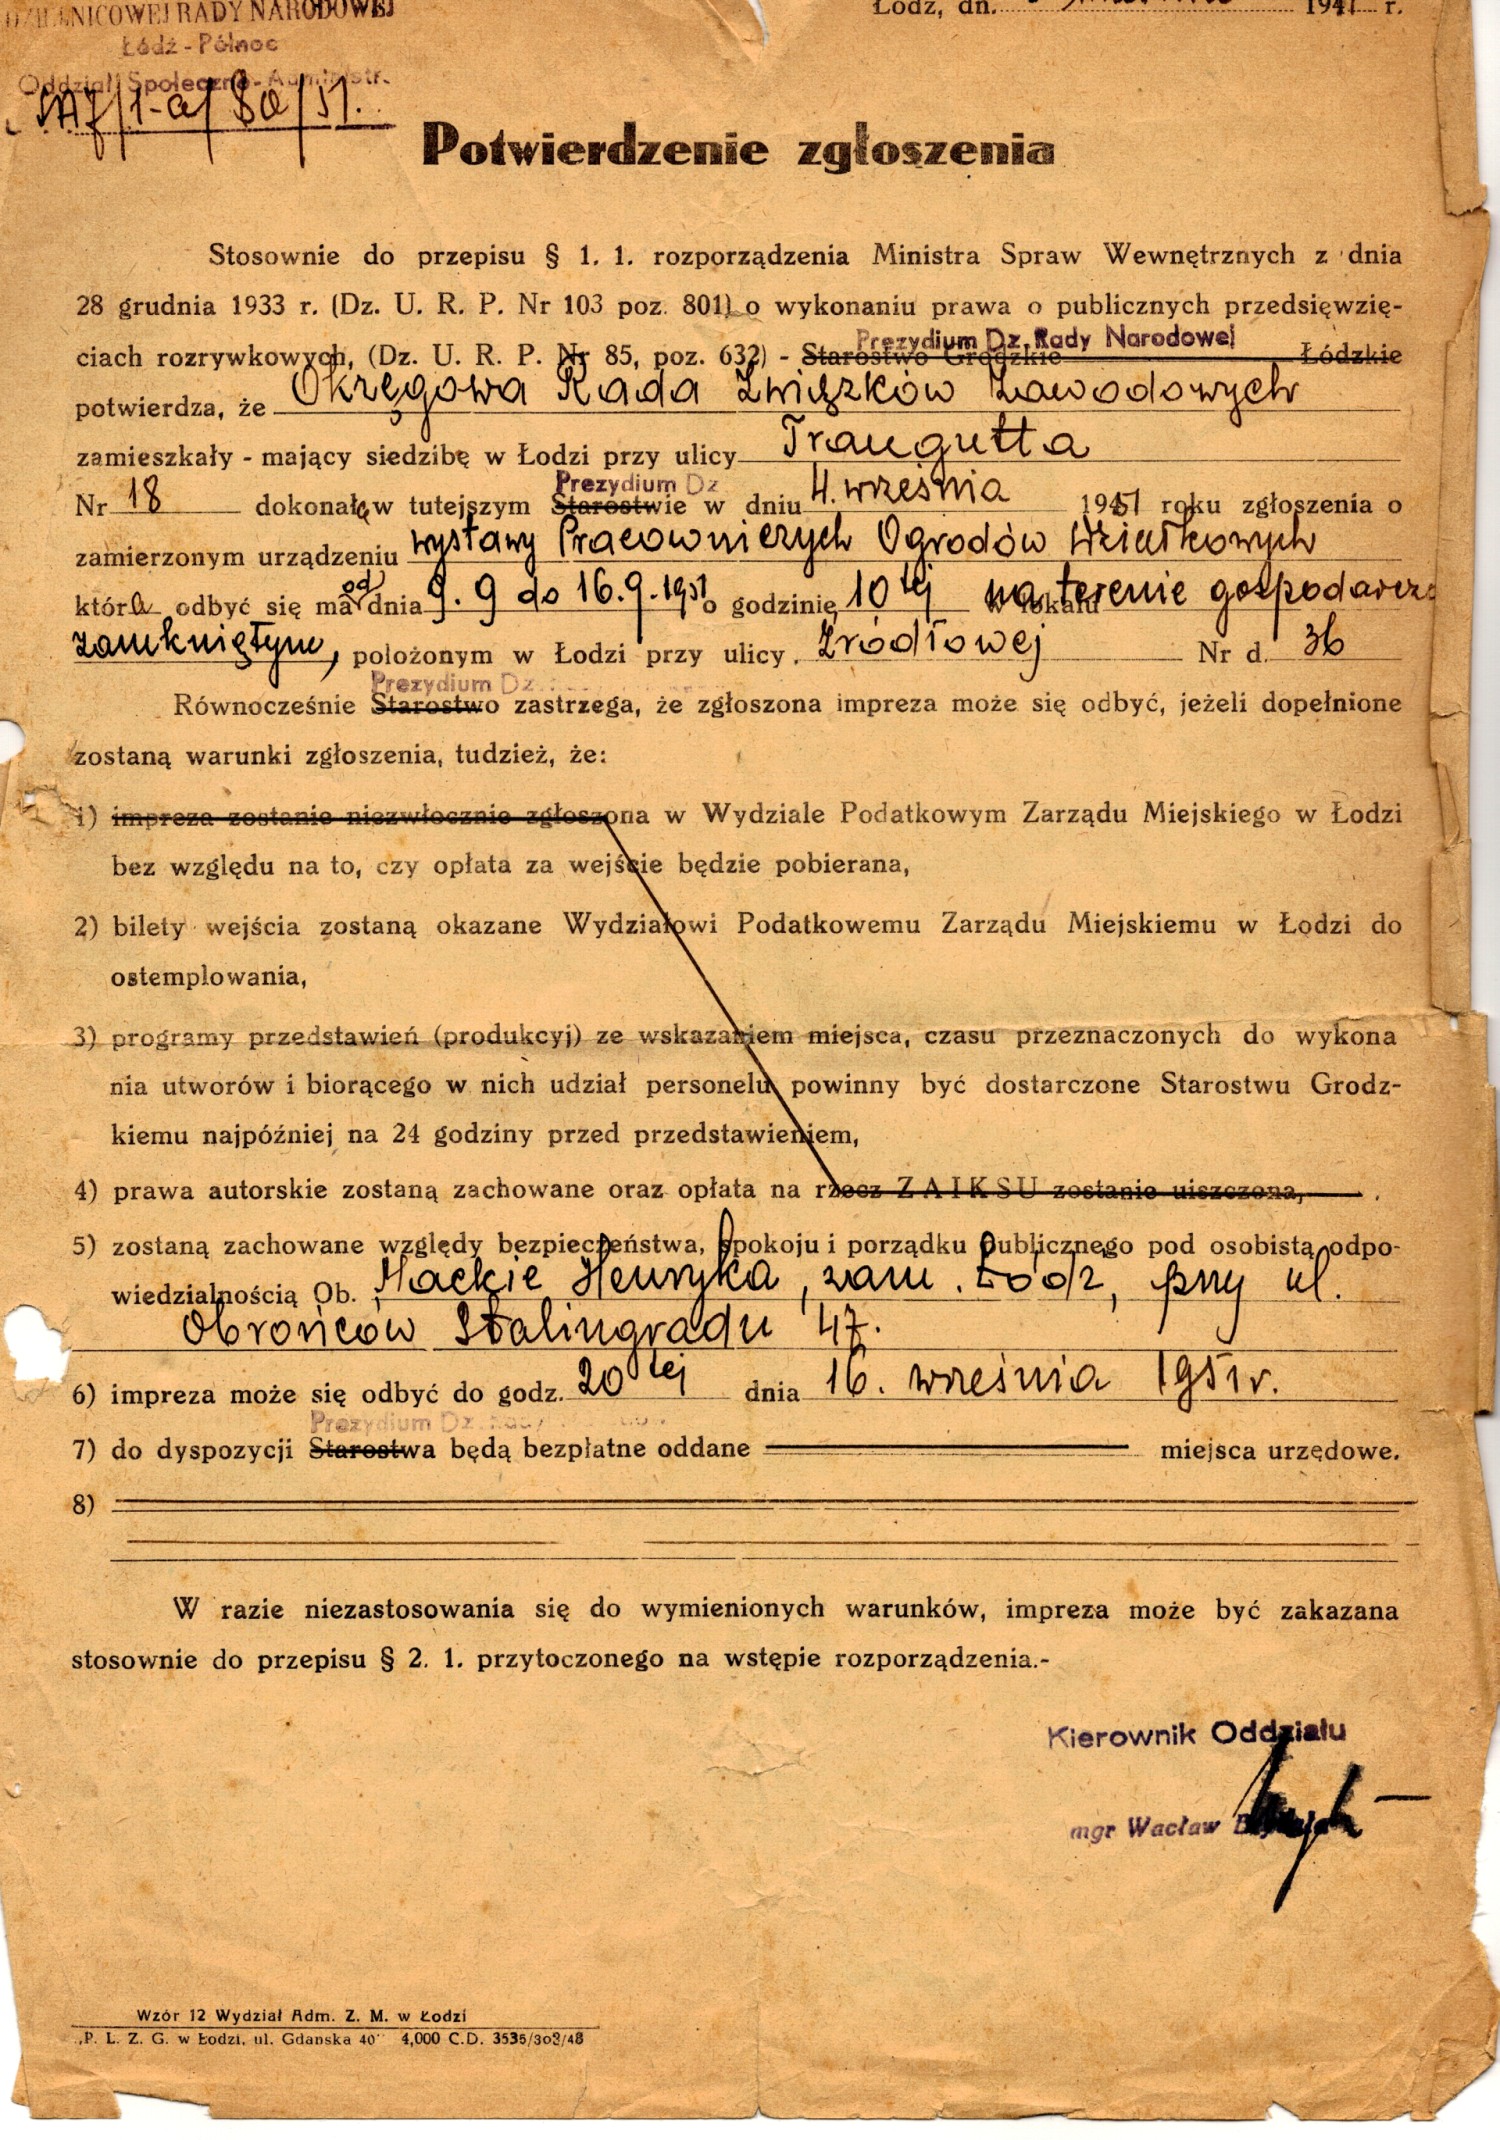 DZIELNICOWEJ RADY NARODOWEJ
Łódź - Północ
Oddział Społeczno-Administr.
Łódź, dn. 194 r.
/1-a/80/51.
Potwierdzenie zgłoszenia
Stosownie do przepisu § 1. 1. rozporządzenia Ministra Spraw Wewnętrznych z dnia
28 grudnia 1933 r. (Dz. U. R. P. Nr 103 poz. 801) o wykonaniu prawa o publicznych przedsięwzię-
Prezydium Dz. Rady Narodowej
ciach rozrywkowych, (Dz. U. R. P. Nr 85, poz. 632) - Starostwo Grodzkie Łódzkie
potwierdza, że Okręgowa Rada Związków Zawodowych
zamieszkały - mający siedzibę w Łodzi przy ulicy Traugutta
Prezydium Dz
Nr 18 dokonała w tutejszym Starostwie w dniu 4. września 1951 roku zgłoszenia o
zamierzonym urządzeniu wystawy Pracowniczych Ogrodów Działkowych
która odbyć się ma od dnia 9. 9 do 16.9.1951 o godzinie 10tej w lokalu na terenie gospodarczo
zamkniętym, położonym w Łodzi przy ulicy Źródłowej Nr d. 36
Prezydium Dz.
Równocześnie Starostwo zastrzega, że zgłoszona impreza może się odbyć, jeżeli dopełnione
zostaną warunki zgłoszenia, tudzież, że:
1) impreza zostanie niezwłocznie zgłoszona w Wydziale Podatkowym Zarządu Miejskiego w Łodzi
bez względu na to, czy opłata za wejście będzie pobierana,
2) bilety wejścia zostaną okazane Wydziałowi Podatkowemu Zarządu Miejskiemu w Łodzi do
ostemplowania,
3) programy przedstawień (produkcyj) ze wskazaniem miejsca, czasu przeznaczonych do wykona
nia utworów i biorącego w nich udział personelu powinny być dostarczone Starostwu Grodz-
kiemu najpóźniej na 24 godziny przed przedstawieniem,
4) prawa autorskie zostaną zachowane oraz opłata na rzecz ZAIKSU zostanie uiszczona,
5) zostaną zachowane względy bezpieczeństwa, spokoju i porządku publicznego pod osobistą odpo-
wiedzialnością Ob. Mackie Henryka, zam. Łódź, przy ul.
Obrońców Stalingradu 47.
6) impreza może się odbyć do godz. 20tej dnia 16. września 1951r.
Prezydium Dz.
7) do dyspozycji Starostwa będą bezpłatne oddane miejsca urzędowe.
8)
W razie niezastosowania się do wymienionych warunków, impreza może być zakazana
stosownie do przepisu § 2. 1. przytoczonego na wstępie rozporządzenia.-
Kierownik Oddziału
mgr Wacław
Wzór 12 Wydział Adm. Z. M. w Łodzi
„P. L. Z. G. w Łodzi, ul. Gdańska 40" 4,000 C.D. 3535/303/48